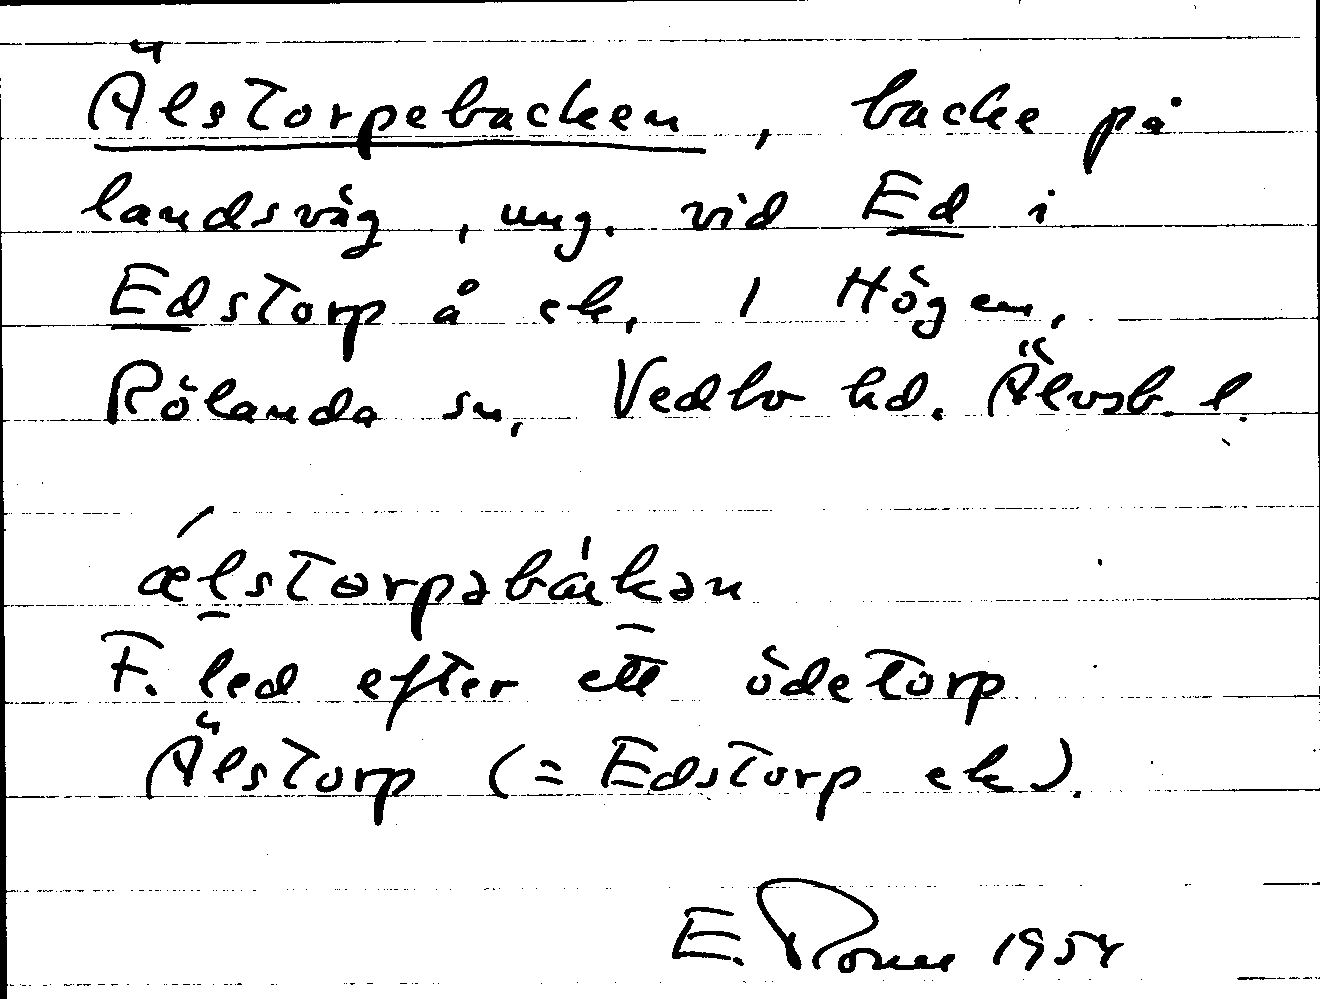 Älstorpebacken, backe på
landsväg, ung. vid Ed i
Edstorp å ek. 1 Högen,
Rölanda sn, Vedbo hd. Älvsb. l.
ǽlstorpəbàkən
F. led efter ett ödetorp
Älstorp (= Edstorp ek).
E. 1954